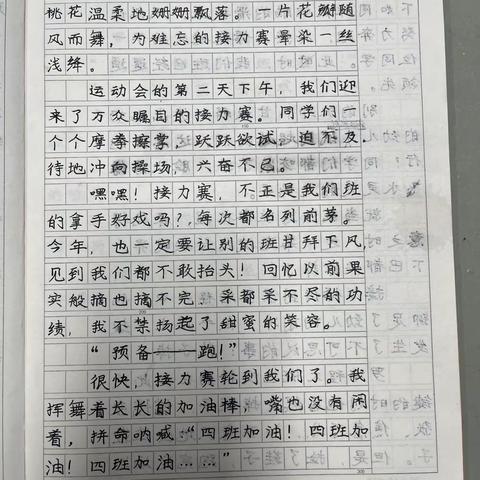 桃花温柔地姗姗飘落。一片花瓣随
风而舞，为难忘的接力赛晕染一丝
浅绛。
运动会的第二天下午，我们迎
来了万众瞩目的接力赛。同学们一
个个摩拳擦掌，跃跃欲试，迫不及
待地冲向操场，兴奋不已。
嘿嘿！接力赛，不正是我们班
的拿手好戏吗？，每次都名列前茅。
今年，也一定要让别的班甘拜下风，
见到我们都不敢抬头！回忆以前果
实般摘也摘不完，采都采不尽的功
绩，我不禁扬起了甜蜜的笑容。
“预备——跑！”
很快，接力赛轮到我们了。我
挥舞着长长的加油棒，嘴也没有闲
着，拼命呐喊“四班加油！四班加
油！四班加油……”